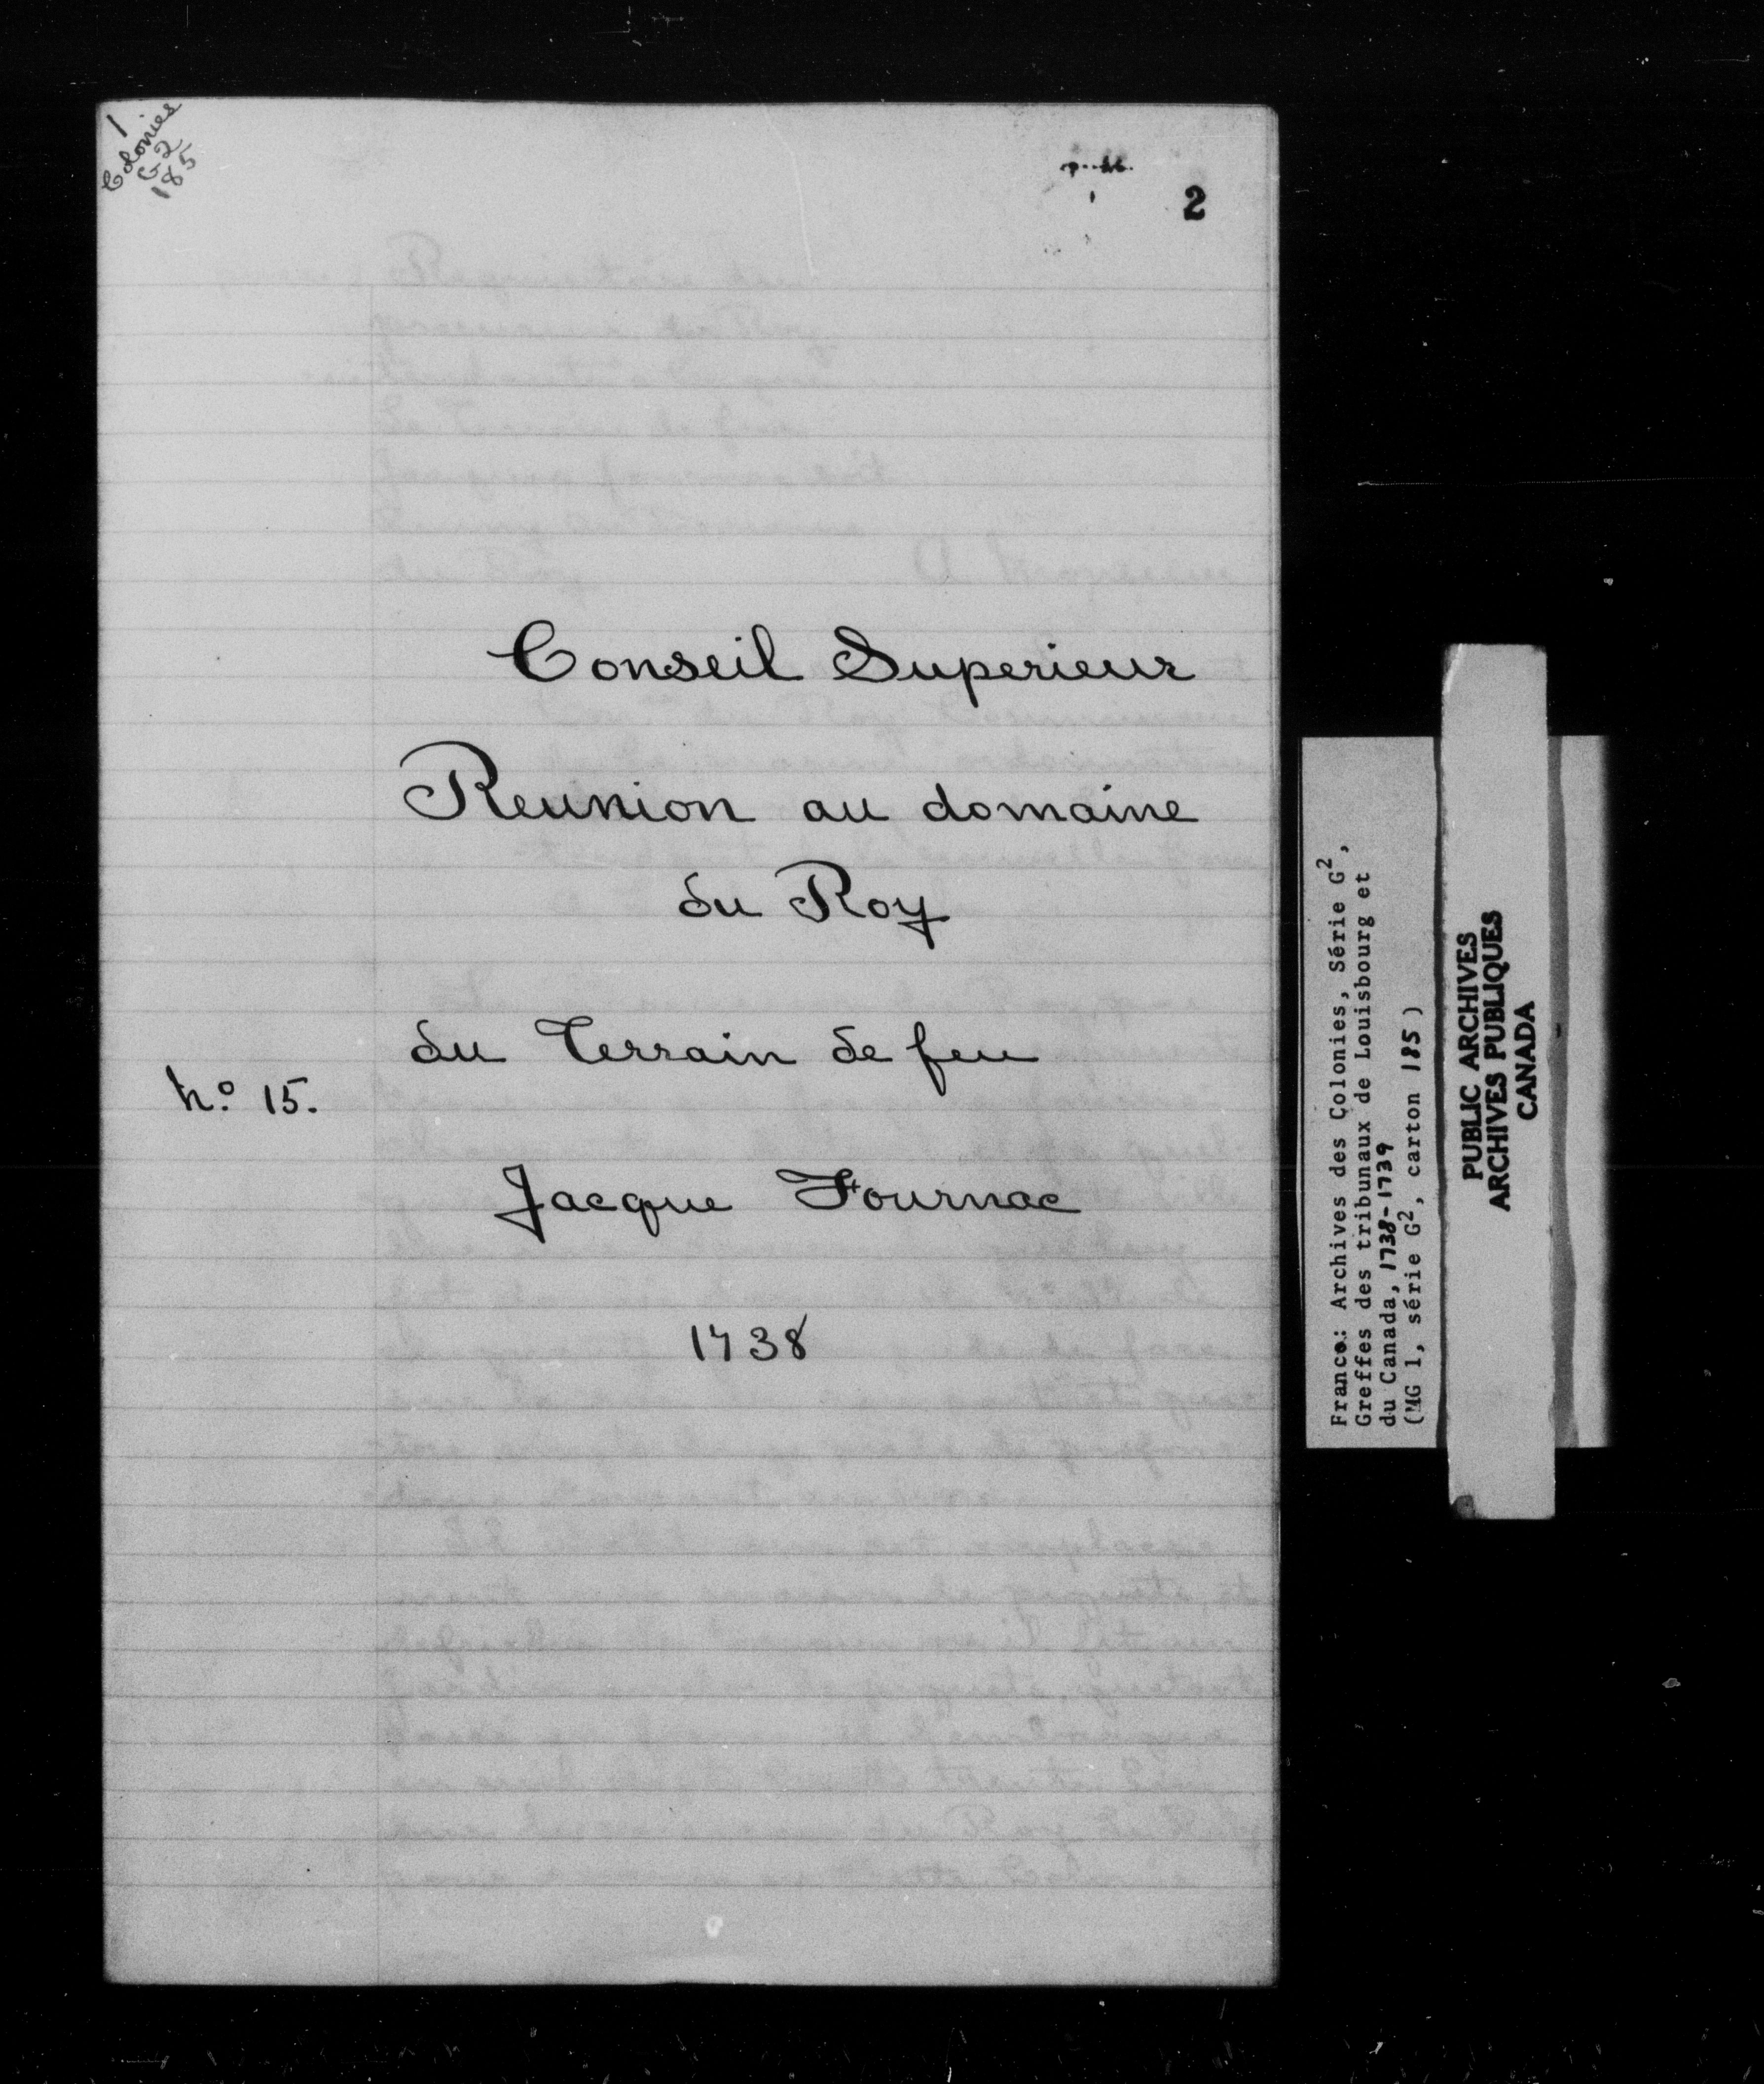 1
Colonies
G2
185
2
Conseil Superieur
Reunion au domaine
du Roy
du Terrain de feu
No. 15.
Jacque Fournac
1738
France: Archives des Colonies, Série G2,
Greffes des tribunaux de Louisbourg et
du Canada, 1738-1739
(MG 1, série G2, carton 185)
PUBLIC ARCHIVES
ARCHIVES PUBLIQUES
CANADA